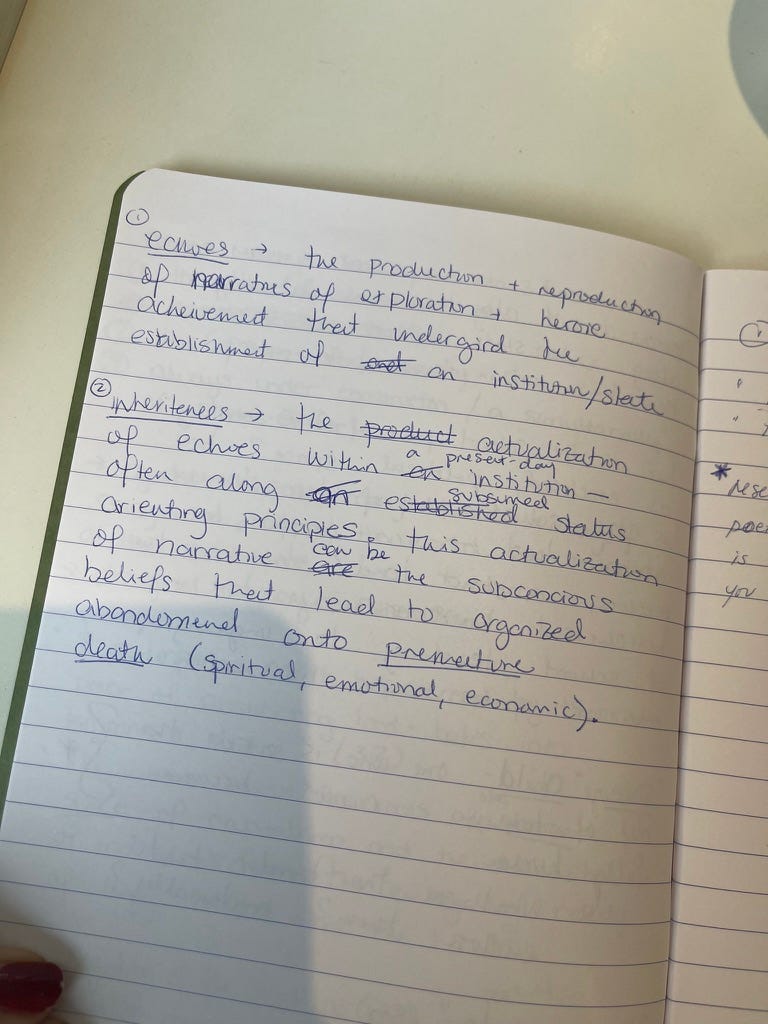 ①
echoes → the production + reproduction
of narratives of exploration + heroic
acheivement that undergird the
establishment of an institution/state
②
inheritences → the product actualization
of echoes within a present-day institution —
often along established subsumed status
orienting principles. this actualization
of narrative are can be the subconcious
beliefs that lead to organized
abandoment onto premeture
death (spiritual, emotional, economic).
*
is
you